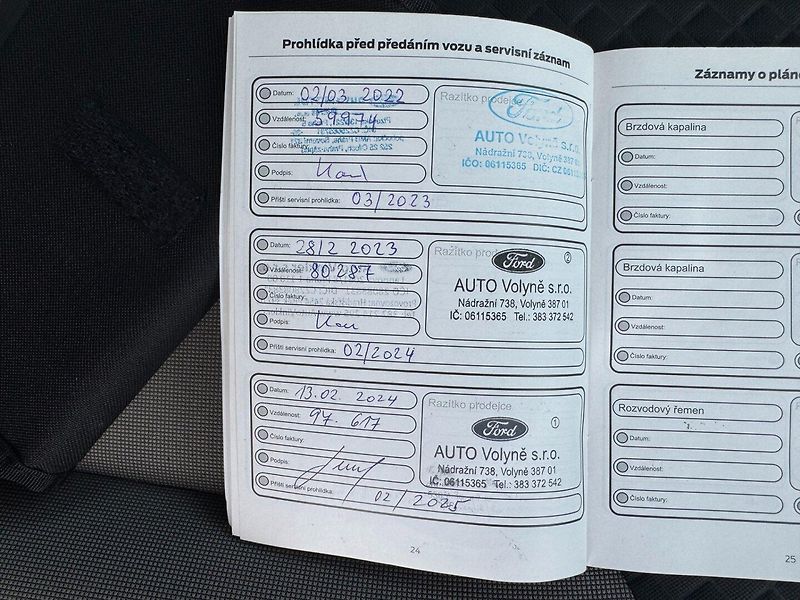 Prohlídka před předáním vozu a servisní záznam
Datum: 02/03 2022
Vzdálenost: 59974
Číslo faktury:
Podpis:
Příští servisní prohlídka: 03/2023
Razítko prodejce
Ford
AUTO Volyně s.r.o.
Nádražní 738, Volyně 387 01
IČO: 06115365 DIČ: CZ
Datum: 28/2 2023
Vzdálenost: 80287
Číslo faktury:
Podpis:
Příští servisní prohlídka: 02/2024
Razítko
Ford
2
AUTO Volyně s.r.o.
Nádražní 738, Volyně 387 01
IČ: 06115365 Tel.: 383 372 542
Datum: 13.02. 2024
Vzdálenost: 97.617
Číslo faktury:
Podpis:
Příští servisní prohlídka: 02/2025
Razítko prodejce
Ford
1
AUTO Volyně s.r.o.
Nádražní 738, Volyně 387 01
IČ: 06115365 Tel.: 383 372 542
24
Záznamy o pláno
Brzdová kapalina
Datum:
Vzdálenost:
Číslo faktury:
Brzdová kapalina
Datum:
Vzdálenost:
Číslo faktury:
Rozvodový řemen
Datum:
Vzdálenost:
Číslo faktury:
25